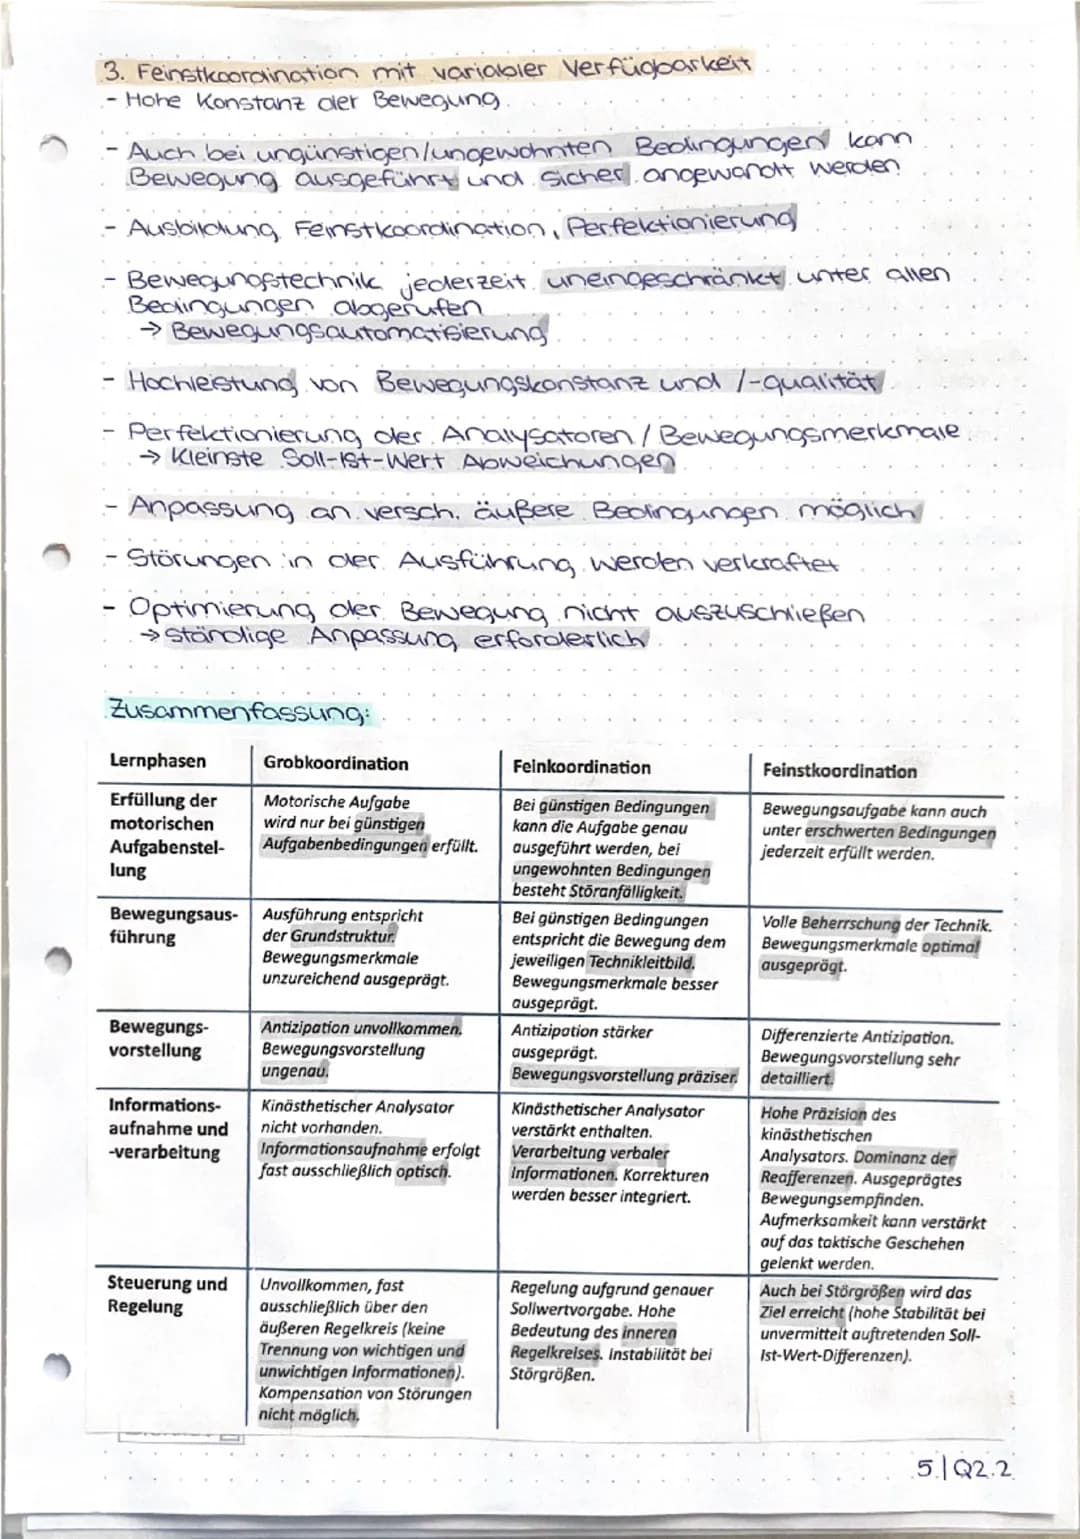 3. Feinstkoordination mit variabler Verfügbarkeit
- Hohe Konstanz der Bewegung
- Auch bei ungünstigen/ungewohnten Bedingungen kann
Bewegung ausgeführt und sicher angewandt werden
- Ausbildung Feinstkoordination, Perfektionierung
- Bewegungstechnik jederzeit uneingeschränkt unter allen
Bedingungen abgerufen
→ Bewegungsautomatisierung
- Hochleistung von Bewegungskonstanz und /-qualität
- Perfektionierung der Analysatoren / Bewegungsmerkmale
→ Kleinste Soll-Ist-Wert Abweichungen
- Anpassung an versch. äußere Bedingungen möglich
- Störungen in der Ausführung werden verkraftet
- Optimierung der Bewegung nicht auszuschließen
→ ständige Anpassung erforderlich
Zusammenfassung:
Lernphasen
Grobkoordination
Feinkoordination
Feinstkoordination
Erfüllung der
motorischen
Aufgabenstel-
lung
Motorische Aufgabe
wird nur bei günstigen
Aufgabenbedingungen erfüllt.
Bei günstigen Bedingungen
kann die Aufgabe genau
ausgeführt werden, bei
ungewohnten Bedingungen
besteht Störanfälligkeit.
Bewegungsaufgabe kann auch
unter erschwerten Bedingungen
jederzeit erfüllt werden.
Bewegungsaus-
führung
Ausführung entspricht
der Grundstruktur.
Bewegungsmerkmale
unzureichend ausgeprägt.
Bei günstigen Bedingungen
entspricht die Bewegung dem
jeweiligen Technikleitbild.
Bewegungsmerkmale besser
ausgeprägt.
Volle Beherrschung der Technik.
Bewegungsmerkmale optimal
ausgeprägt.
Bewegungs-
vorstellung
Antizipation unvollkommen.
Bewegungsvorstellung
ungenau.
Antizipation stärker
ausgeprägt.
Bewegungsvorstellung präziser.
Differenzierte Antizipation.
Bewegungsvorstellung sehr
detailliert.
Informations-
aufnahme und
-verarbeitung
Kinästhetischer Analysator
nicht vorhanden.
Informationsaufnahme erfolgt
fast ausschließlich optisch.
Kinästhetischer Analysator
verstärkt enthalten.
Verarbeitung verbaler
Informationen. Korrekturen
werden besser integriert.
Hohe Präzision des
kinästhetischen
Analysators. Dominanz der
Reafferenzen. Ausgeprägtes
Bewegungsempfinden.
Aufmerksamkeit kann verstärkt
auf das taktische Geschehen
gelenkt werden.
Steuerung und
Regelung
Unvollkommen, fast
ausschließlich über den
äußeren Regelkreis (keine
Trennung von wichtigen und
unwichtigen Informationen).
Kompensation von Störungen
nicht möglich.
Regelung aufgrund genauer
Sollwertvorgabe. Hohe
Bedeutung des inneren
Regelkreises. Instabilität bei
Störgrößen.
Auch bei Störgrößen wird das
Ziel erreicht (hohe Stabilität bei
unvermittelt auftretenden Soll-
Ist-Wert-Differenzen).
5.|Q2.2